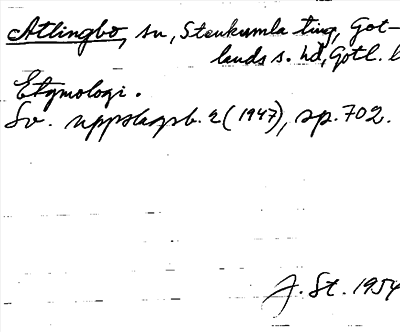 Atlingbo, sn, Stenkumla ting, Got-
lands s. hd, Gotl. l
Etymologi.
Sv. uppslagsb. 2 (1947), sp. 702.
J. St. 1954